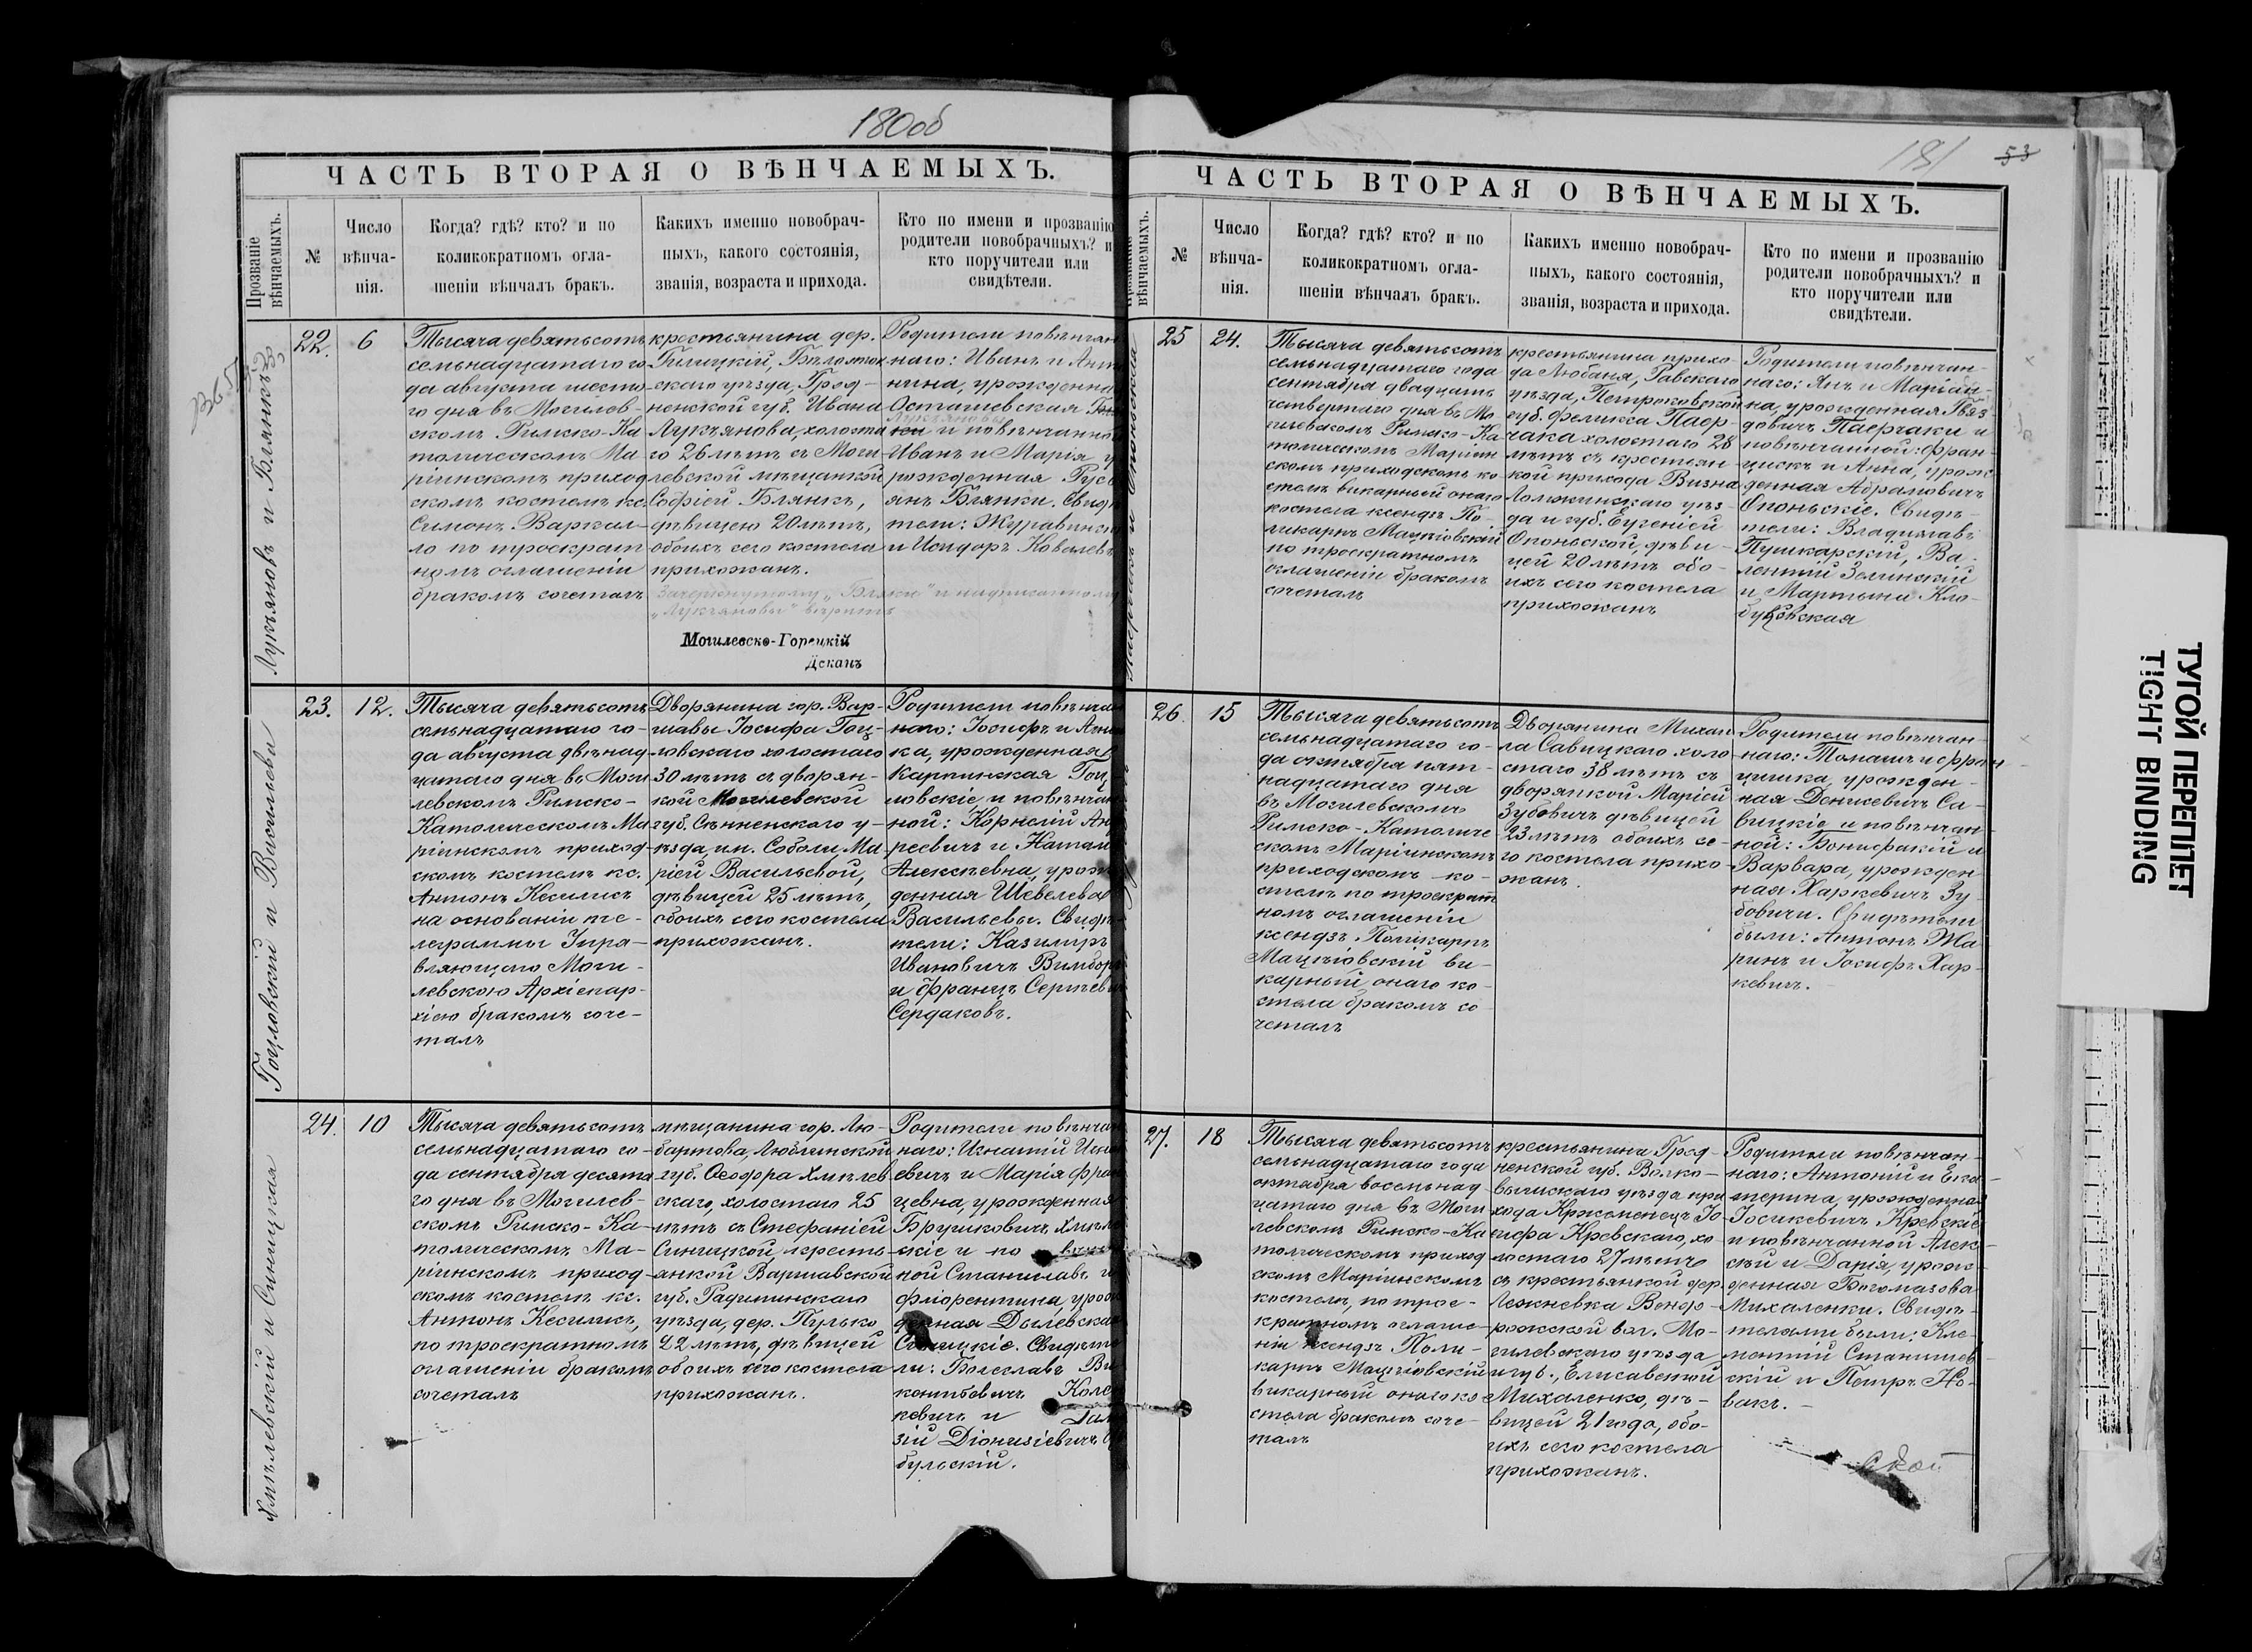 180об
ЧАСТЬ ВТОРАЯ О ВѢНЧАЕМЫХЪ.
Прозваніе вѣнчаемыхъ.
№
Число
вѣнча-
нія.
Когда? гдѣ? кто? и по
коликократномъ огла-
шеніи вѣнчалъ бракъ.
Какихъ именно новобрач-
ныхъ, какого состоянія,
званія, возраста и прихода.
Кто по имени и прозванію
родители новобрачныхъ? и
кто поручители или
свидѣтели.
Лукъяновъ и Блянкъ
22.
6
Тысяча девятьсотъ
семьнадцатаго го-
да августа шесто-
го дня въ Могилев-
скомъ Римско-Ка
толическомъ Ма-
ріинскомъ приход
скомъ костелѣ кс.
Симонъ Варкал-
ло по троекрат
номъ оглашеніи
бракомъ сочеталъ
крестьянина дер.
Бѣлосток
скаго уѣзда, Грод-
ненской губ. Ивана
Лукъянова, холоста
го 26 лѣтъ съ Моги-
левской мѣщанкой
Софіей Блянкъ,
дѣвицею 20 лѣтъ,
обоихъ сего костела
прихожанъ.
Зачеркнутому и надписанному
„Лукъяновы" вѣрить
Могилевско-Горецкій
Деканъ
Родители повѣнчан
наго: Иванъ и Ант
нина, урожденна
Осташевская
Лукъяновы
и повѣнчанно
Иванъ и Марія у
рожденная Русь
янъ Блянки. Свидѣ
тели: Журавинс
и Исидоръ Ковалев
Гоцловскій и Васильева
23.
12.
Тысяча девятьсотъ
семьнадцатаго го-
да августа двѣнад
цатаго дня въ Моги
левскомъ Римско-
Католическомъ Ма
ріинскомъ приход-
скомъ костелѣ кс.
Антонъ Кесилисъ
на основаніи те-
леграммы Упра-
вляющаго Моги-
левскою Архіепар-
хіею бракомъ соче-
талъ
Дворянина гор. Вар-
шавы Іосифа Гоц-
ловскаго холостаго
30 лѣтъ съ дворян-
кой Могилевской
губ. Сѣнненскаго у-
ѣзда, им. Соболи Ма-
ріей Васильевой,
дѣвицей 25 лѣтъ,
обоихъ сего костела
прихожанъ.
Родители повѣнча
наго: Іосифъ и Анн
ка, урожденная
Карпинская Гоц
ловскіе и повѣнчан
ной: Корнелій Анд
реевичъ и Натал
Алексѣевна, урож
денная Шевелева
Васильевы. Свидѣ
тели: Казимиръ
Ивановичъ Вимбор
и Францъ Сергѣев
Сердаковъ.
Хмѣлевскій и Синицкая
24.
10
Тысяча девятьсотъ
семьнадцатаго го-
да сентября десята
го дня въ Могилев-
скомъ Римско-Ка-
толическомъ Ма-
ріинскомъ приход-
скомъ костелѣ кс.
Антонъ Кесилисъ,
по троекратномъ
оглашеніи бракомъ
сочеталъ
мѣщанина гор. Лю-
бартова, Люблинской
губ. Ѳеофора Хмѣлев
скаго, холостаго 25
лѣтъ съ Стефаніей
Синицкой кресть-
янкой Варшавской
губ. Радиминскаго
уѣзда, дер. Пулько
22 лѣтъ, дѣвицей
обоихъ сего костела
прихожанъ.
Родители повѣнча
наго: Игнатій Игна
евичъ и Марія Фран
цевна, урожденная
Брушковичъ Хмѣл
скіе и по вѣнч
ной Станиславъ и
Фліорентина, урож
денная Дылевска
Синицкіе. Свидѣте
ли: Болеславъ Ви
кентьевичъ Коле
кевичъ и
зій Діонизіевичъ
бульскій.
181
53
ЧАСТЬ ВТОРАЯ О ВѢНЧАЕМЫХЪ.
вѣнчаемыхъ.
№
Число
вѣнча-
нія.
Когда? гдѣ? кто? и по
коликократномъ огла-
шеніи вѣнчалъ бракъ.
Какихъ именно новобрач-
ныхъ, какого состоянія,
званія, возраста и прихода.
Кто по имени и прозванію
родители новобрачныхъ? и
кто поручители или
свидѣтели.
25
24.
Тысяча девятьсотъ
семьнадцатаго года
сентября двадцать
четвертаго дня въ Мо-
гилевскомъ Римско-Ка
толическомъ Маріин
скомъ приходскомъ ко
стелѣ викарный онаго
костела ксендзъ По-
ликарпъ Мацѣіовскій
по троекратномъ
оглашеніи бракомъ
сочеталъ
крестьянина прихо-
да Любаня, Равскаго
уѣзда, Петроковской
губ. Феликса Паер-
чака холостаго 28
лѣтъ съ крестьян-
кой прихода Визна
Ломжинскаго уѣз-
да и губ. Евгеніей
Опоньской, дѣви-
цей 20 лѣтъ обо-
ихъ сего костела
прихожанъ
Родители повѣнчан-
наго: Янъ и Маріан-
на, урожденная Гвяз-
довичъ Паерчаки и
повѣнчанной: Фран-
цискъ и Анна, урож
денная Абрамовичъ
Опоньскіе. Свидѣ-
тели: Владиславъ
Пушкарскій, Ва-
лентій Зелинскій
и Мартына Кло-
буковская
26.
15
Тысяча девятьсотъ
семьнадцатаго го-
да октября пят-
надцатаго дня
въ Могилевскомъ
Римско-Католиче-
скомъ Маріинскомъ
приходскомъ ко-
стелѣ по троекрат
номъ оглашеніи
ксендзъ Поликарпъ
Мацѣіовскій ви-
карный онаго ко-
стела бракомъ со
четалъ
Дворянина Михаи
ла Савицкаго холо
стаго 38 лѣтъ съ
дворянкой Маріей
Зубовичъ дѣвицей
23 лѣтъ обоихъ се-
го костела прихо-
жанъ.
Родители повѣнчан-
наго: Томашъ и Фран
цишка, урожден-
ная Денисевичъ Са-
вицкіе и повѣнчан-
ной: Бонифакій и
Варвара, урожден-
ная Харкевичъ Зу-
бовичи. Свидѣтели
были: Антонъ Жа
ринъ и Іосифъ Хар-
кевичъ.
27.
18
Тысяча девятьсотъ
семьнадцатаго года
октября восемьнад
цатаго дня въ Моги
левскомъ Римско-Ка
толическомъ приход
скомъ Маріинскомъ
костелѣ, по трое-
кратномъ оглаше-
ніи ксендзъ Поли-
карпъ Мацѣіовскій
викарный онаго ко
стела бракомъ соче-
талъ
крестьянина Грод-
ненской губ. Волко-
выскаго уѣзда при
хода Кржеменецъ Іо-
сифа Кревскаго, хо
лостаго 27 лѣтъ
съ крестьянкой дер.
Лежневка Вендо-
рожской вол. Мо-
гилевскаго уѣзда
и губ., Елисаветой
Михаленко, дѣ-
вицей 21 года, обо-
ихъ сего костела
прихожанъ.
Родители повѣнчан-
наго: Антоній и Ека-
терина, урожденная
Іосикевичъ Кревскіе
и повѣнчанной Алек-
сѣй и Дарія, урож-
денная Богомазова
Михаленки. Свидѣ-
телями были: Кле-
ментій Станишев
скій и Петръ Но-
вакъ.
ТУГОЙ ПЕРЕПЛЕТ
TIGHT BINDING